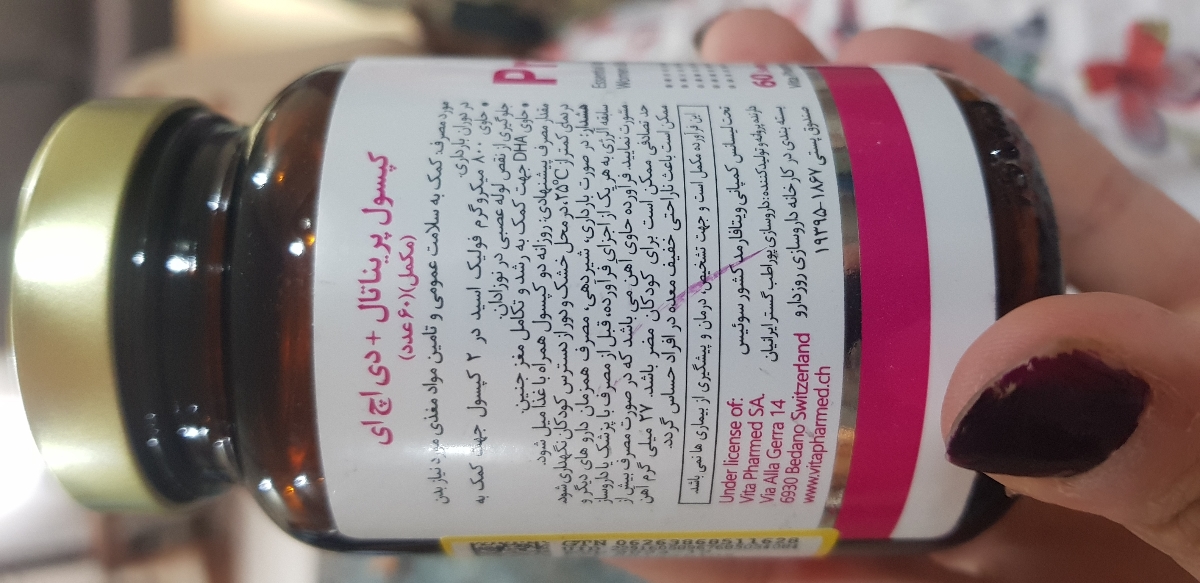 کپسول پریناتال + دی اچ ای
(مکمل) (۶۰ عدد)
مورد مصرف: کمک به سلامت عمومی و تامین مواد مغذی مورد نیاز بدن
در دوران بارداری.
• حاوی ۸۰۰ میکروگرم فولیک اسید در ۲ کپسول جهت کمک به
جلوگیری از نقص لوله عصبی در نوزادان.
• حاوی DHA جهت کمک به رشد و تکامل مغز جنین
مقدار مصرف پیشنهادی: روزانه دو کپسول همراه با غذا میل شود.
در دمای کمتر از ۲۵°C، در محل خشک و دور از دسترس کودکان نگهداری شود.
هشدار: در صورت بارداری، شیردهی، مصرف همزمان داروهای دیگر و
سابقه آلرژی به هر یک از اجزای فرآورده، قبل از مصرف با پزشک یا داروساز
مشورت نمایید. فرآورده حاوی آهن می باشد که در صورت مصرف بیش از
حد تصادفی ممکن است برای کودکان مضر باشد. ۲۷ میلی گرم آهن
ممکن است باعث ناراحتی خفیف معده در افراد حساس گردد.
این فرآورده مکمل است و جهت تشخیص، درمان و پیشگیری از بیماری ها نمی باشد.
تحت لیسانس کمپانی ویتافارمد کشور سوئیس
دارنده پروانه و تولیدکننده: داروسازی پوراطب گستر ایرانیان
بسته بندی در کارخانه داروسازی روزدارو
صندوق پستی ۱۸۶۷-۱۹۳۹۵
Under license of:
Vita Pharmed SA.
Via Alla Gerra 14
6930 Bedano Switzerland
www.vitapharmed.ch
Pr
60